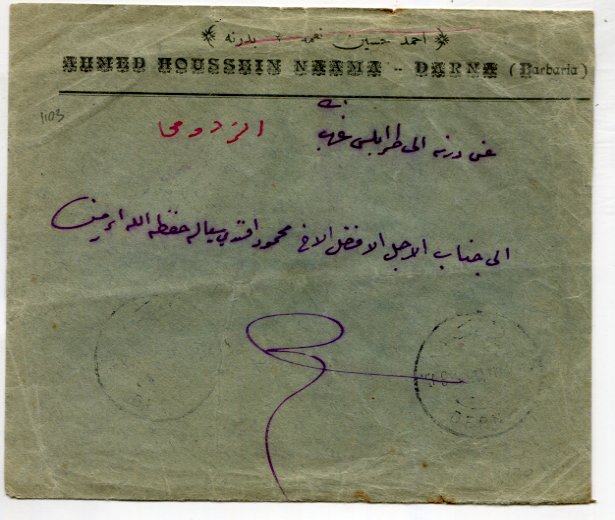 احمد حسين نعمه بدرنه
AHMED HOUSSEIN NAAMA - DARNA (Barbaria)
1103
من درنه الى طرابلس غرب
الى جناب الاجل الافضل الاخ محمود افندي سياله حفظه الله امين
DERN